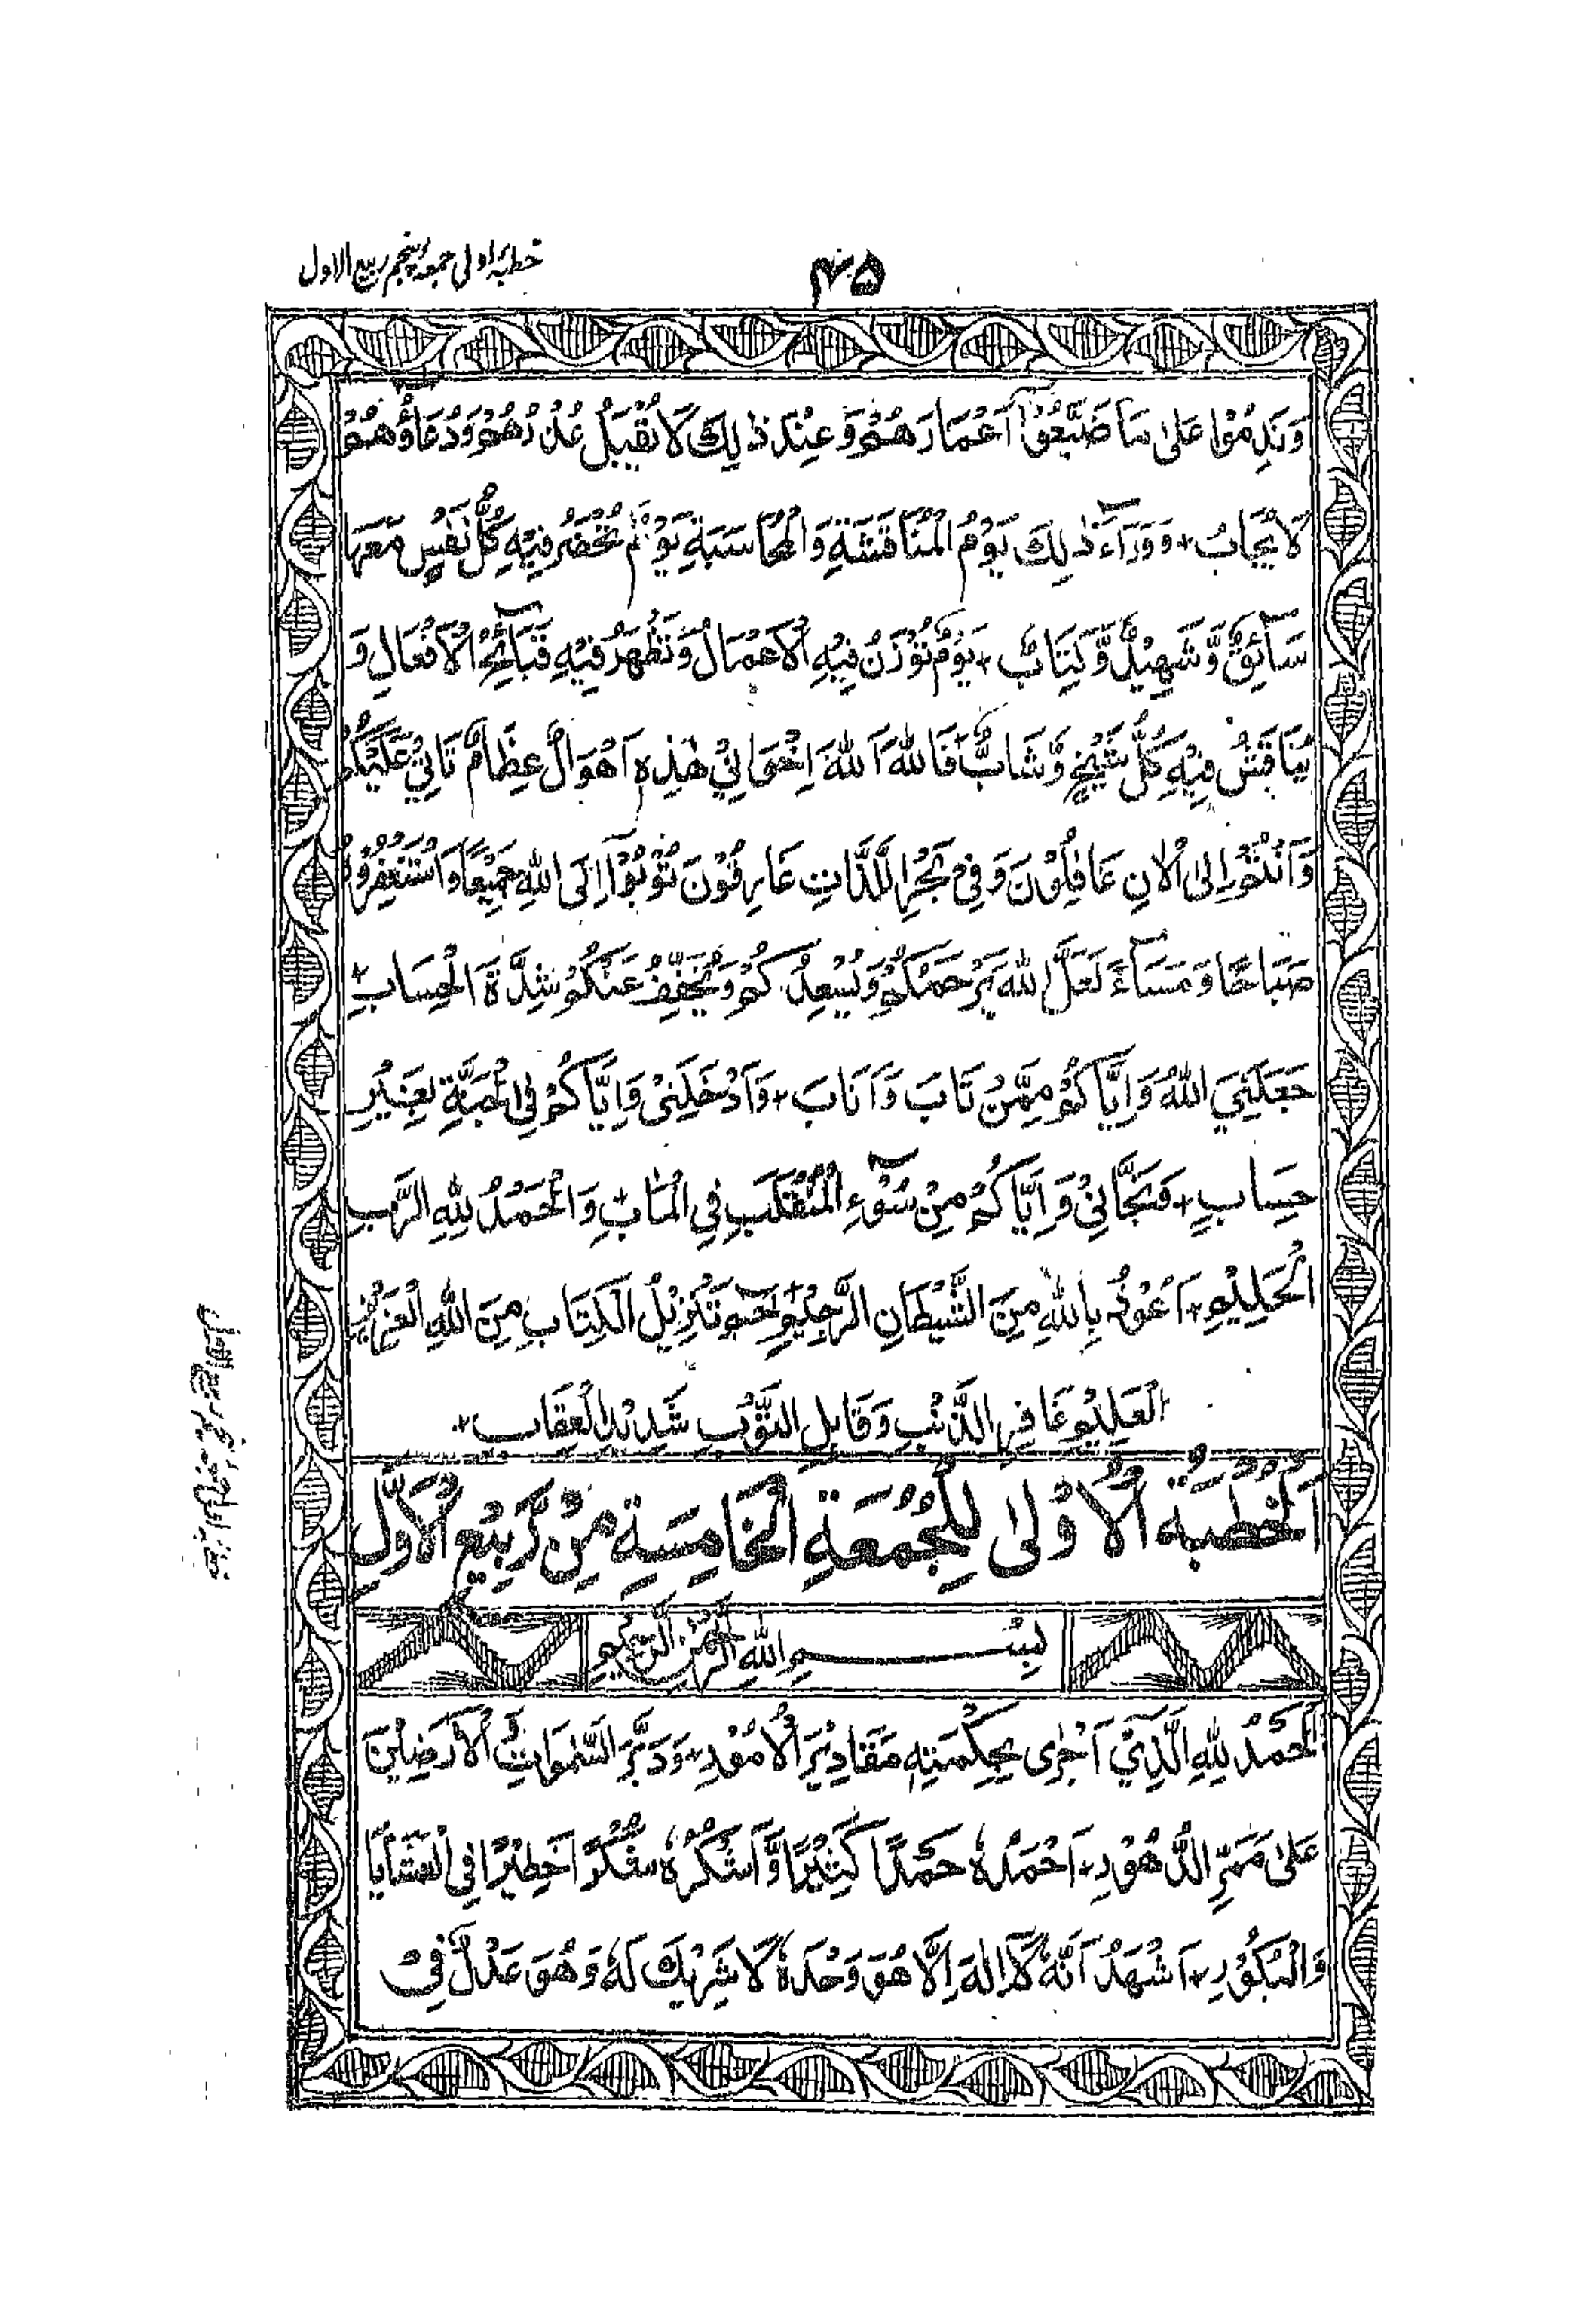 ۴۵
خطبۂ اولی جمعۂ پنجم ربیع الاول
وَنَدِمُوْا عَلٰى مَا ضَيَّعُوْٓا اَعْمَارَهُمْ وَعِنْدَ ذٰلِكَ لَا تُقْبَلُ عُذْرُهُمْ وَدُعَاؤُهُمْ
لَا يُجَابُ + وَوَرَآءَ ذٰلِكَ يَوْمُ الْمُنَاقَشَةِ وَالْمُحَاسَبَةِ يَوْمٌ تُحْضَرُ فِيْهِ كُلُّ نَفْسٍ مَعَهَا
سَآئِقٌ وَّشَهِيْدٌ وَّكِتَابٌ + يَوْمٌ تُوْزَنُ فِيْهِ الْاَعْمَالُ وَتَظْهَرُ فِيْهِ قَبَآئِحُ الْاَفْعَالِ وَ
يُنَاقَشُ فِيْهِ كُلُّ شَيْخٍ وَّشَابٍّ فَاللهَ اَللهَ اِخْوَانِيْ هٰذِهٖ اَهْوَالٌ عِظَامٌ تَاتِيْ عَلَيْكُمْ
وَاَنْتُمْ اِلَى الْاٰنِ غَافِلُوْنَ وَفِيْ بَحْرِ اللَّذَّاتِ غَارِقُوْنَ تُوْبُوْٓا اِلَى اللهِ جَمِيْعًا وَاسْتَغْفِرُوْهُ
صَبَاحًا وَمَسَآءً لَعَلَّ اللهَ يَرْحَمُكُمْ وَيُسْعِدُكُمْ وَيُخَفِّفُ عَنْكُمْ شِدَّةَ الْحِسَابِ +
جَعَلَنِيَ اللهُ وَاِيَّاكُمْ مِمَّنْ تَابَ وَاَنَابَ + وَاَدْخَلَنِيْ وَاِيَّاكُمْ فِي الْجَنَّةِ بِغَيْرِ
حِسَابٍ + وَنَجَّانِيْ وَاِيَّاكُمْ مِنْ سُوْٓءِ الْمُنْقَلَبِ فِي الْمَاٰبِ وَالْحَمْدُ لِلّٰهِ الرَّبِّ
الْحَلِيْمِ + اَعُوْذُ بِاللهِ مِنَ الشَّيْطَانِ الرَّجِيْمِ حٰمٓ تَنْزِيْلُ الْكِتَابِ مِنَ اللهِ الْعَزِيْزِ
الْعَلِيْمِ غَافِرِ الذَّنْبِ وَقَابِلِ التَّوْبِ شَدِيْدِ الْعِقَابِ +
اَلْخُطْبَةُ الْاُوْلٰى لِلْجُمُعَةِ الْخَامِسَةِ مِنْ رَّبِيْعِ الْاَوَّلِ
بِسْمِ اللهِ الرَّحْمٰنِ الرَّحِيْمِ
اَلْحَمْدُ لِلّٰهِ الَّذِيْٓ اَجْرٰى بِحِكْمَتِهٖ مَقَادِيْرَ الْاُمُوْرِ + وَدَبَّرَ السَّمٰوَاتِ وَالْاَرَضِيْنَ
عَلٰى مَمَرِّ الدُّهُوْرِ + اَحْمَدُهٗ حَمْدًا كَثِيْرًا وَّاَشْكُرُهٗ شُكْرًا خَطِيْرًا فِي الْعَشَايَا
وَالْبُكُوْرِ + اَشْهَدُ اَنَّهٗ لَآ اِلٰهَ اِلَّا هُوَ وَحْدَهٗ لَا شَرِيْكَ لَهٗ وَهُوَ عَدْلٌ فِيْ